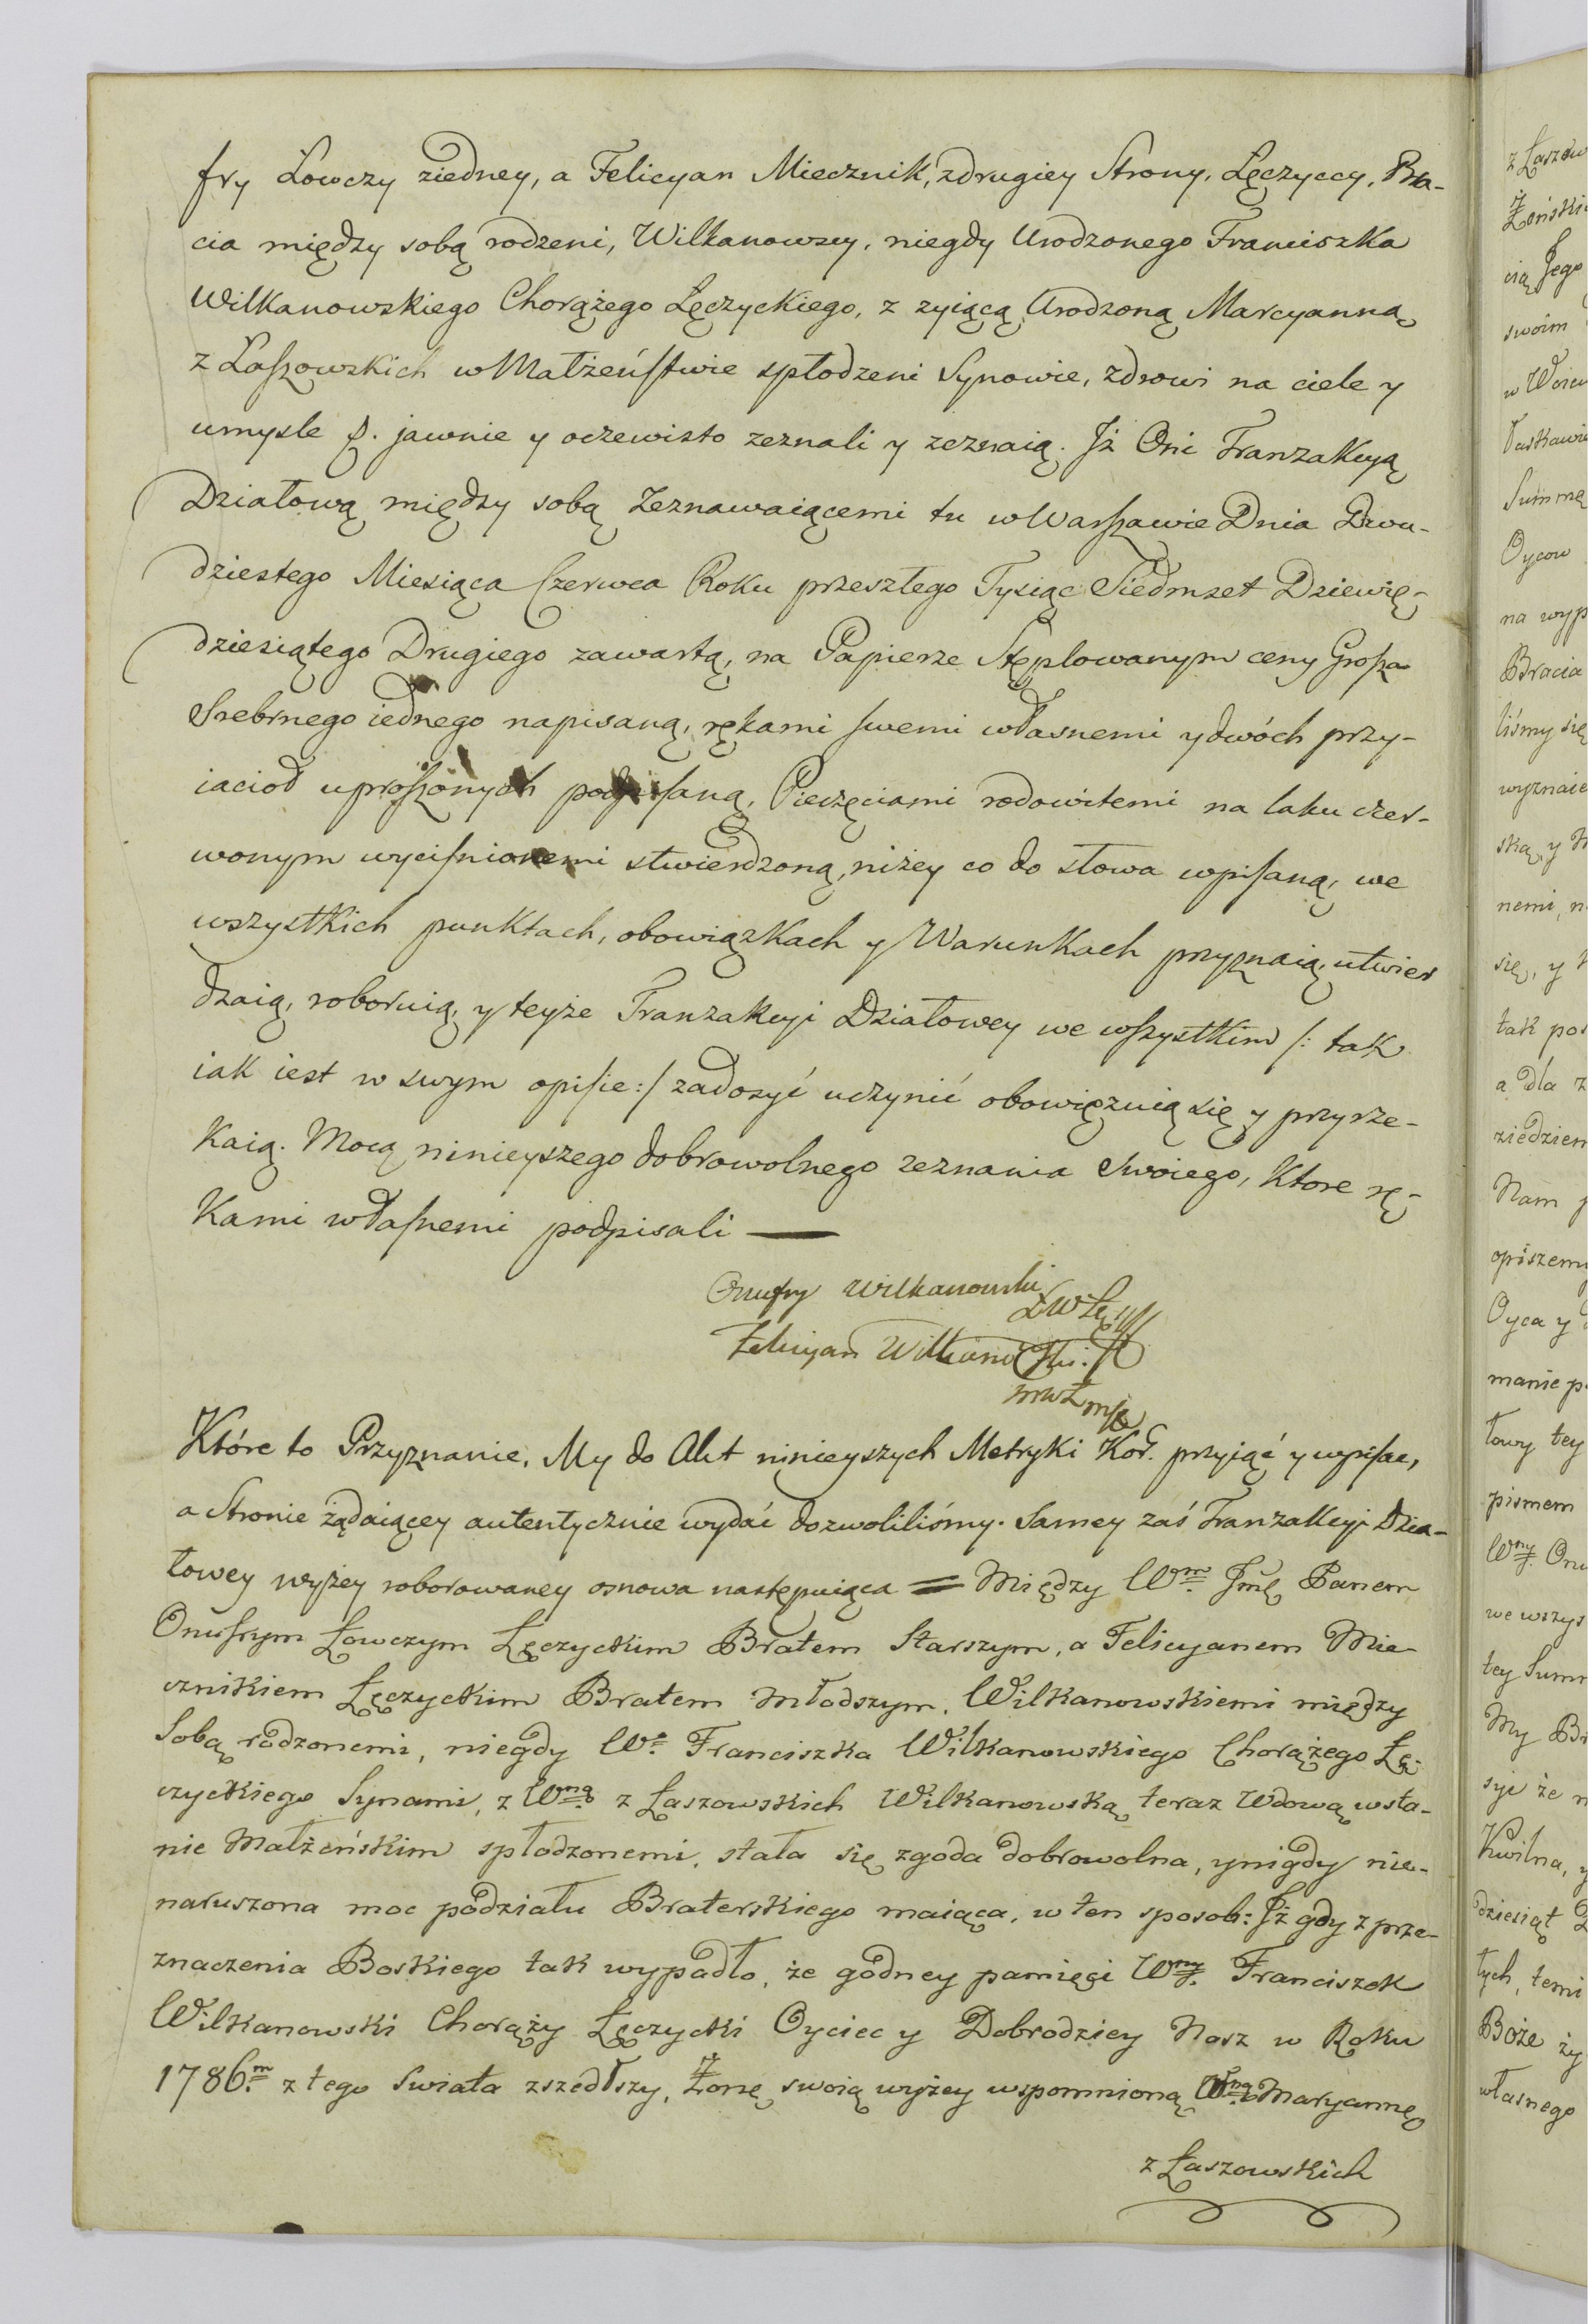 fry Łowczy ziedney, a Felicyan Miecznik, zdrugiey Strony, Łęczyccy, Bra-
cia między sobą rodzeni, Wilkanowscy, niegdy Urodzonego Franciszka
Wilkanowskiego Chorążego Łęczyckiego, z zyiącą Urodzoną Marcyanną
z Łaszowskich w Małżeństwie spłodzeni Synowie, zdrowi na ciele y
umysle jawnie y oczewisto zeznali y zeznaią. Iż Oni Tranzakcyą
Działową między sobą Zeznawaiącemi tu w Warszawie Dnia Dwu-
dziestego Miesiąca Czerwca Roku przeszłego Tysiąc Siedmset Dziewię-
dziesiątego Drugiego zawartą, na Papierze Stęplowanym ceny Grosza
Srebrnego iednego napisaną, rękami swemi własnemi y dwóch przy-
iacioł uproszonych podpisaną, Pieczęciami rodowitemi na laku czer-
wonym wycisnionemi stwierdzoną, niżey co do słowa wpisaną, we
wszystkich punktach, obowiązkach y Warunkach przyznaią, utwier
dzaią, roboruią, y teyże Tranzakcyi Działowey we wszystkim /: tak
iak iest w swym opisie :/ zadosyć uczynić obowięzuią się y przyrze-
kaią. Mocą ninieyszego dobrowolnego zeznania Swoiego, ktore rę-
kami własnemi podpisali —
Onufry Wilkanowski
Ł W Łę
Felicyan Wilkanowski.
mwŁ mp
Które to Przyznanie, My do Akt ninieyszych Metryki Kor. przyjąć y wpisac,
a Stronie żądaiącey autentycznie wydać dozwoliliśmy. Samey zaś Tranzakcyi Dzia-
łowey wyżey roborowaney osnowa następuiąca = Między Wm Jmę Panem
Onufrym Łowczym Łęczyckim Bratem Starszym, a Felicyanem Mie
cznikiem Łęczyckim Bratem Młodszym, Wilkanowskiemi między
Sobą rodzonemi, niegdy Wo Franciszka Wilkanowskiego Chorążego Łę-
czyckiego Synami, z Wną z Łaszowskich Wilkanowską teraz Wdową w sta-
nie Małżeńskim spłodzonemi, stała się zgoda dobrowolna, y nigdy nie-
naruszona moc podziału Braterskiego maiąca, w ten sposob: Iż gdy z prze-
znaczenia Boskiego tak wypadło, że godney pamięci Wny Franciszek
Wilkanowski Chorąży Łęczycki Oyciec y Dobrodziey Nasz w Roku
1786m z tego Swiata zszedłszy, Żonę swoią wyżey wspomnioną Wną Maryannę
z Łaszowskich
z Łaszow
Żeński
cią Jego
swoim
w Woiew
Łaskawie
Summę
Oycow
na wyp
Bracia
liśmy się
wyznaie
ską, y
nemi, n
się, y
tak po
a dla z
ziedzien
Nam
opiszemy
Oyca y
manie p
łowy tey
pismem
Wny Onu
we wszys
tey Summ
My Br
syi że n
Kwilna, y
dziesiąt
tych, temi
Boże ży
własnego